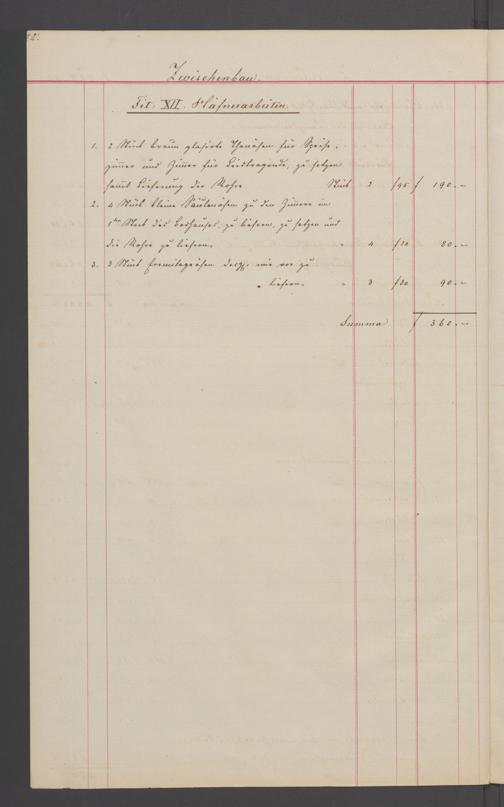 Zwischenbau.
Tit. XII. Hafnerarbeiten.
1. 2 Stück braun glasirte Thonöfen für Speise-
zimmer und Zimmer für Leidtragende, zu setzen
sammt Lieferung der Rohre Stück 2 f 95 f 190.–
2. 4 Stück kleine Säulenöfen zu den Zimmern im
1ten Stock des Leshauses, zu liefern, zu setzen und
die Rohre zu liefern. " 4 f 20 80.–
3. 3 Stück Eremitageöfen wie vor zu
" liefern. " 3 f 30 90.–
Summa f 360.–